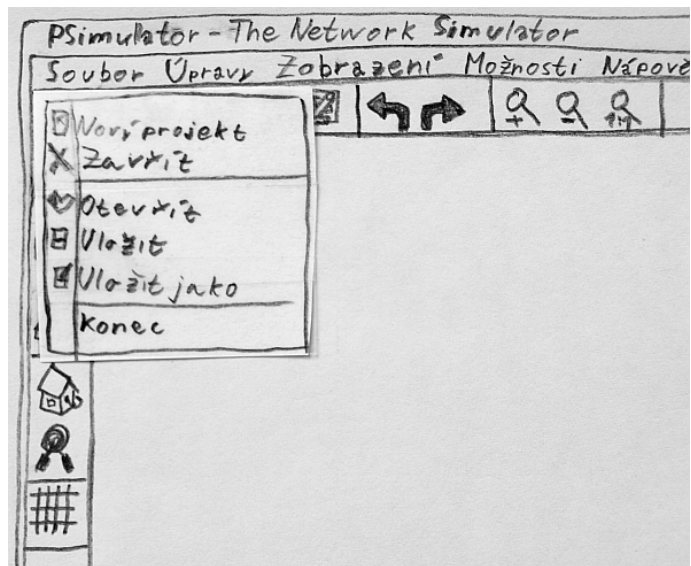 PSimulator - The Network Simulator
Soubor Úpravy Zobrazení Možnosti Nápově
Nový projekt
Zavřít
Otevřít
Uložit
Uložit jako
Konec
1:1